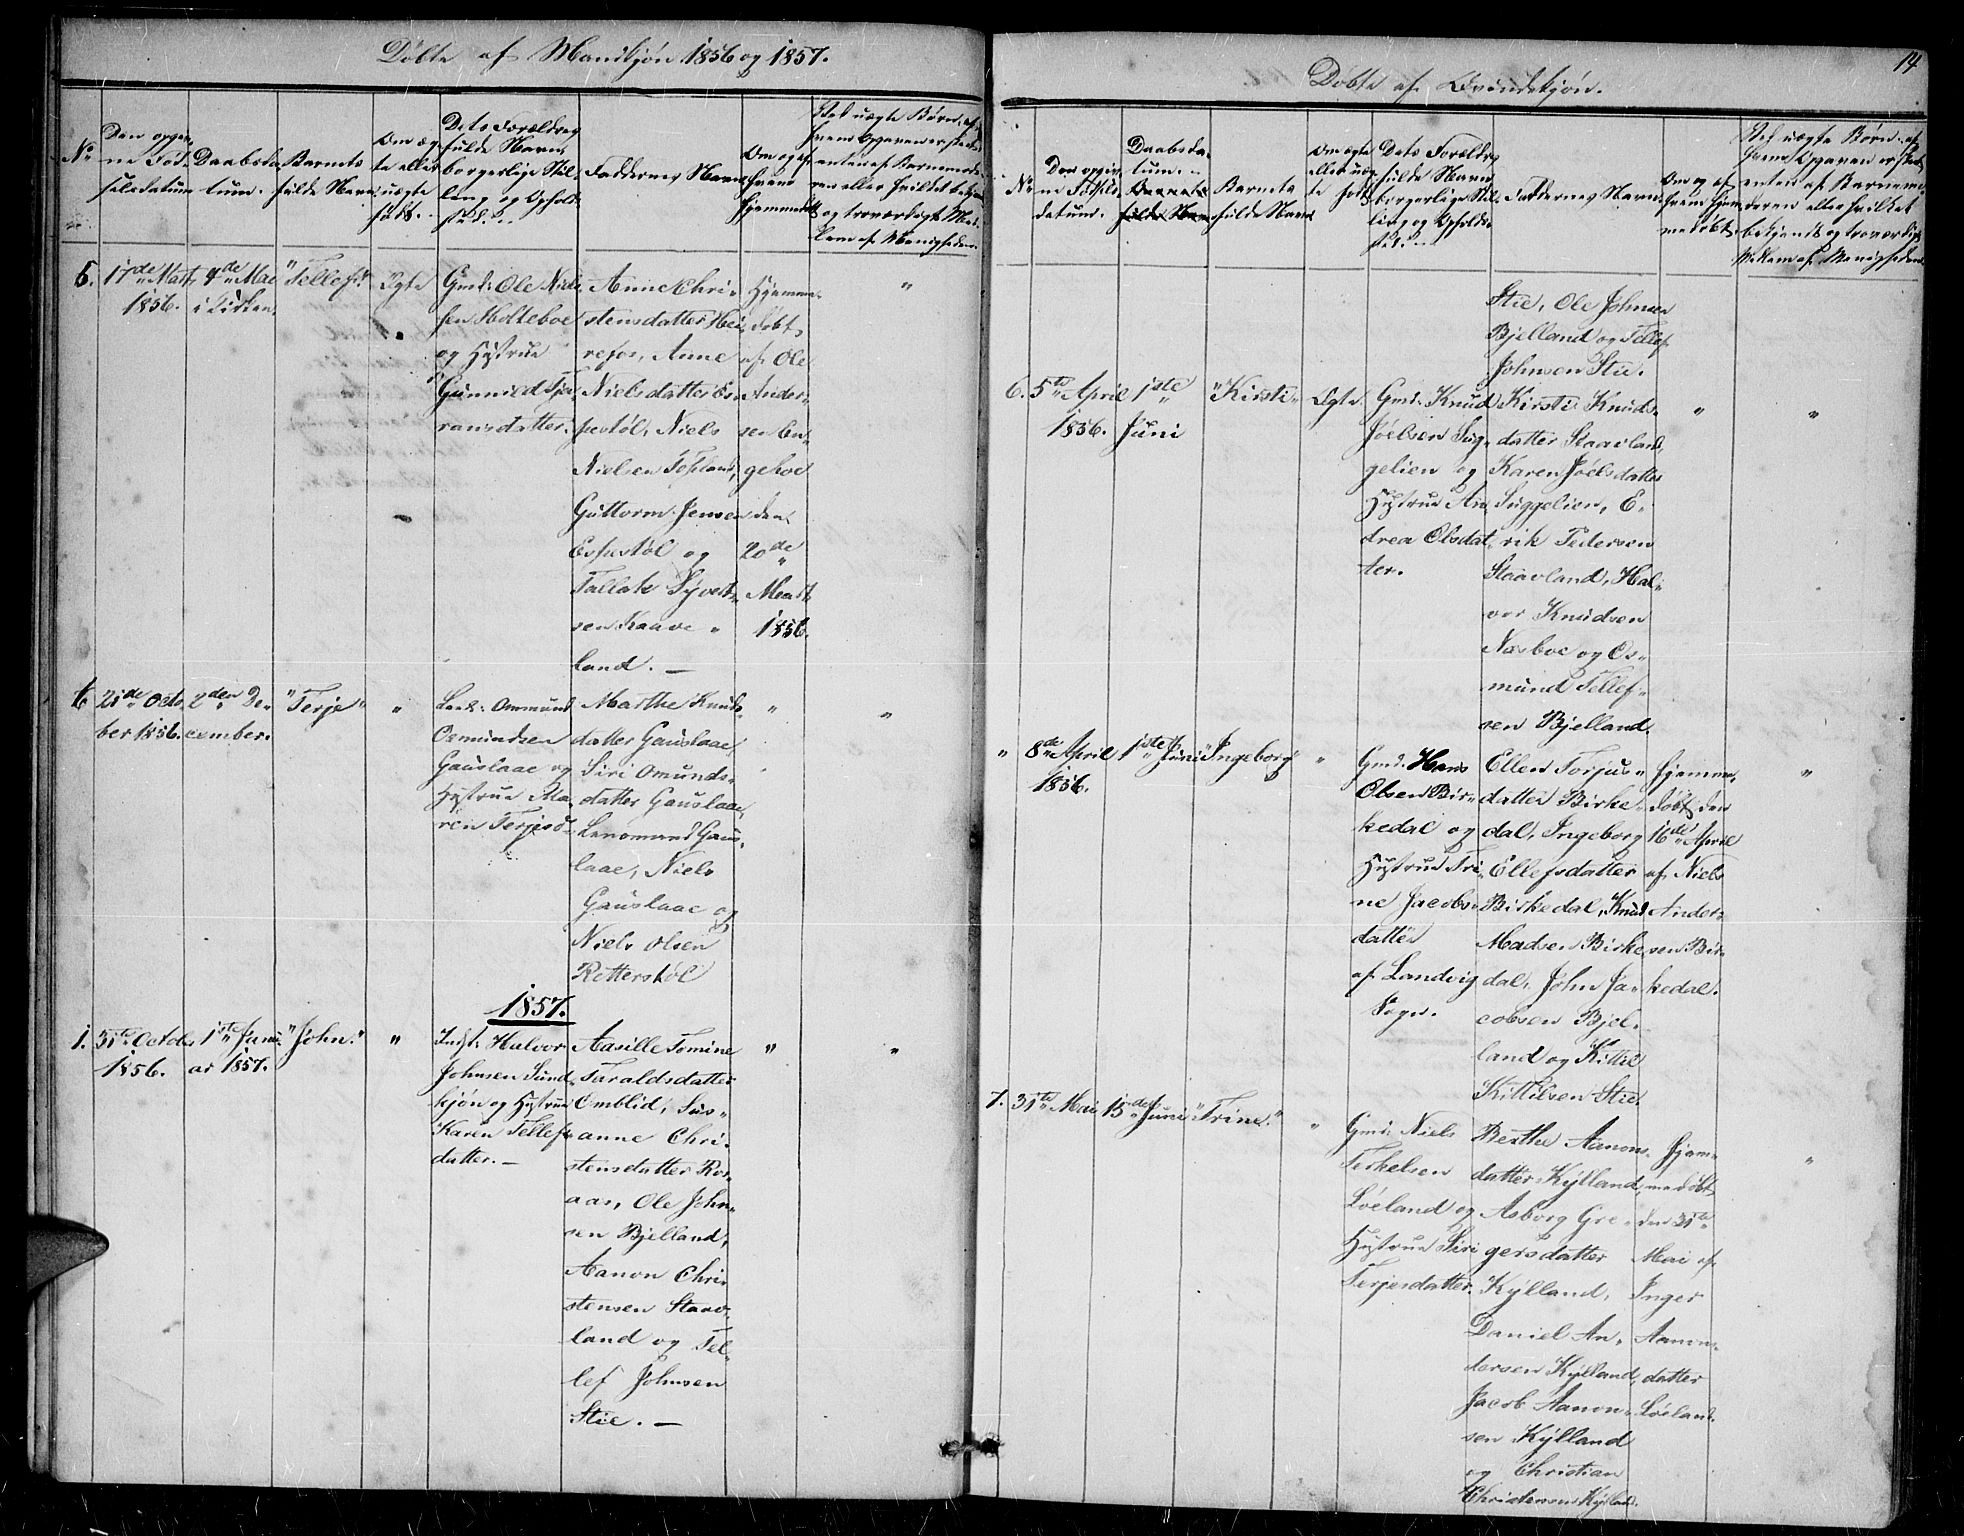 Døbte af Mandkjøn 1856 og 1857.
No
Den opgiv-
ne Fød-
selsdatum
Daabsda-
tum.
Barnets
fulde Navn
Om æg-
te eller
uægte
født.
Dets Forældres
fulde Navn,
borgerlige Stil-
ling og Opholds-
sted.
Faddernes Navn
Om og af
hvem
hjemmedøbt
5. 17de Marts
1856.
4de Mai
i Kirken
"Tellef"
Ægte
Gmd. Ole Niel-
sen Holteboe
og Hustrue
Gunnild Tja-
ransdatter.
Anne Chri-
stensdatter Hei-
refos, Anne
Nielsdatter Es-
pestøl, Niels
Nielsen Topland,
Guttorm Jensen
Espestøl og
Tallak Syvert-
sen Kaave-
land. —
Hjemme-
døbt
af Ole
Ander-
sen En-
geboe
den
20de
Marts
1856.
"
6. 21de Octo-
ber 1856.
2den De-
cember.
"Terje"
"
Omund
Osmundsen
Gauslaae og
Hustrue Ma-
ren Terjesd-
Marthe Knuds-
datter Gauslaae,
Siri Omunds-
datter Gauslaae,
Gaus-
laae, Niels
Gauslaae og
Niels Olsen
Retterstøl
"
"
1857.
1. 31te October
1856.
1ste Janu-
ar 1857.
"John."
"
Indst. Halvor
Johnsen Sund-
kjøn og Hustrue
Karen Tellefs-
datter. —
Aasille Tomine
Taraldsdatter
Omblid, Sus-
anne Chri-
stensdatter Ros-
aas, Ole John-
sen Bjelland,
Aanon Chri-
stensen Staav-
land og Tel-
lef Johnsen
Stie. —
"
"
14
Døbte af Qvindekjøn.
No
Den opgiv-
ne Fødsels-
datum.
Daabsda-
tum.
Barnets
fulde Navn
Barnets
fulde Navn
Om ægte
eller uæg-
te født
Dets Forældres
fulde Navn
borgerlige Stil-
ling og Opholds-
sted.
Faddernes Navn.
Om og af
hvem hjem-
medøbt
Stie, Ole Johnsen
Bjelland og Tellef
Johnsen Stie.
6. 5te April
1856.
1ste
Juni
"Kirsti"
Ægte
Gmd. Knud
Joelsen Sug-
gelien og
Hustrue An-
drea Olsdat-
ter.
Kirsti Knuds-
datter Staavland,
Karen Joelsdatter
Suggelien, E-
rik Pedersen
Staavland, Hal-
vor Knudsen
Næsboe og Os-
mund Tellef-
sen Bjelland.
"
"
" 8de April
1856.
1ste Juni
"Ingeborg"
"
Gmd. Hans
Olsen Bir-
kedal og
Hustrue Tri-
ne Jacobs-
datter
af Landvig
Sogn.
Ellen Torjus-
datter Birke-
dal, Ingeborg
Ellefsdatter
Birkedal, Knud
Madsen Birke-
dal, John Ja-
cobsen Bjel-
land og Kittel
Kittilsen Stie.
Hjemme-
døbt den
16de April
af Niels
Ander-
sen Bir-
kedal.
"
7. 31te Mai
15de Juni
"Trine."
"
Gmd. Niels
Terkelsen
Løeland og
Hustrue Siri
Terjesdatter.
Berthe Aanons-
datter Kylland,
Asborg Gre-
gersdatter
Kylland,
Daniel An-
dersen Kylland,
Jacob Aanon-
sen Kylland
og Christian
Christensen Kylland.
Hjem-
medøbt
den 31te
Mai af
Inger
Aanons-
datter
Løeland.
"